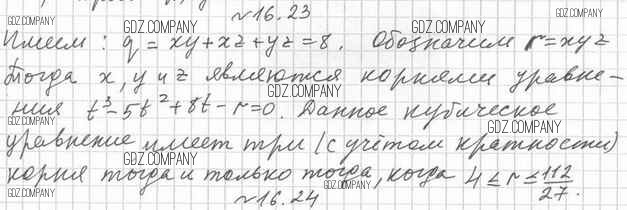 №16.23
GDZ.COMPANY GDZ.COMPANY
Имеем: q = xy+xz+yz=8. Обозначим r=xyz
GDZ.COMPANY
Тогда x, y и z являются корнями уравне-
GDZ.COMPANY
ния t³-5t²+8t-r=0. Данное кубическое
GDZ.COMPANY GDZ.COMPANY
уравнение имеет три (с учётом кратности)
GDZ.COMPANY
корня тогда и только тогда, когда 4≤r≤112/27.
GDZ.COMPANY GDZ.COMPANY
№16.24